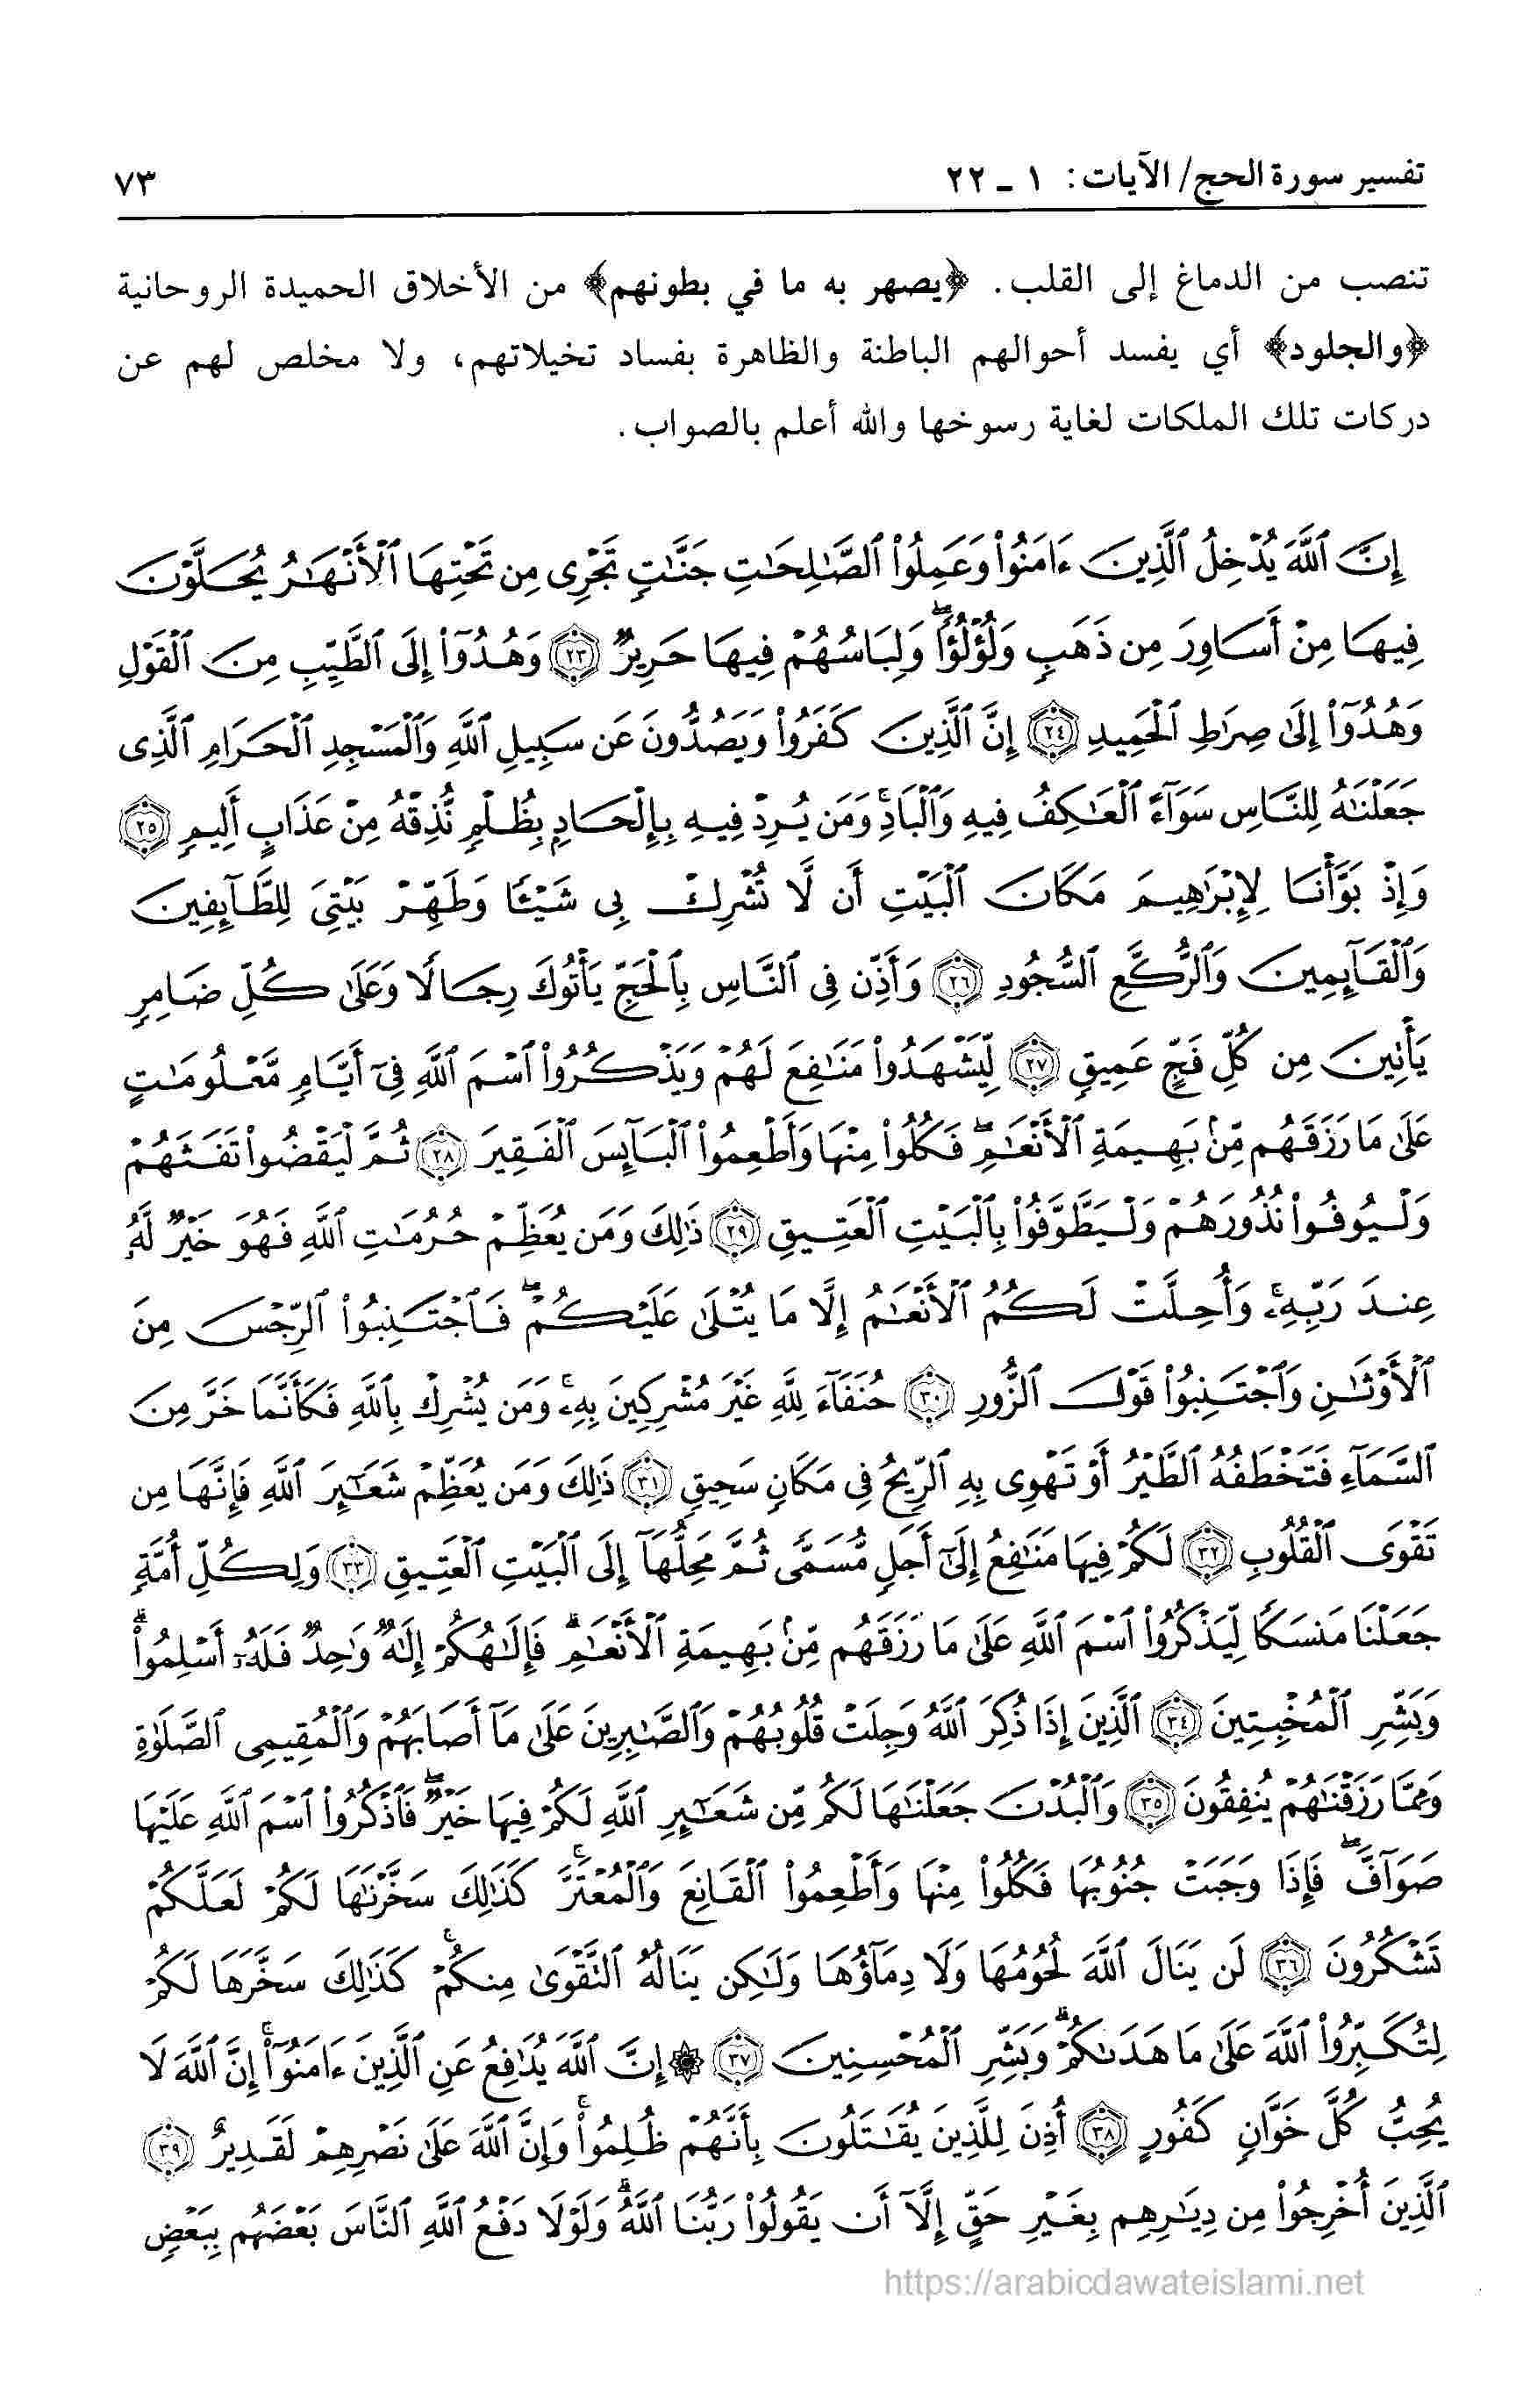 تفسير سورة الحج/ الآيات: ١ ـ ٢٢ ٧٣
تنصب من الدماغ إلى القلب. ﴿يصهر به ما في بطونهم﴾ من الأخلاق الحميدة الروحانية
﴿والجلود﴾ أي يفسد أحوالهم الباطنة والظاهرة بفساد تخيلاتهم، ولا مخلص لهم عن
دركات تلك الملكات لغاية رسوخها والله أعلم بالصواب.
إِنَّ ٱللَّهَ يُدْخِلُ ٱلَّذِينَ ءَامَنُوا۟ وَعَمِلُوا۟ ٱلصَّٰلِحَٰتِ جَنَّٰتٍ تَجْرِى مِن تَحْتِهَا ٱلْأَنْهَٰرُ يُحَلَّوْنَ
فِيهَا مِنْ أَسَاوِرَ مِن ذَهَبٍ وَلُؤْلُؤًا ۖ وَلِبَاسُهُمْ فِيهَا حَرِيرٌ ﴿٢٣﴾ وَهُدُوٓا۟ إِلَى ٱلطَّيِّبِ مِنَ ٱلْقَوْلِ
وَهُدُوٓا۟ إِلَىٰ صِرَٰطِ ٱلْحَمِيدِ ﴿٢٤﴾ إِنَّ ٱلَّذِينَ كَفَرُوا۟ وَيَصُدُّونَ عَن سَبِيلِ ٱللَّهِ وَٱلْمَسْجِدِ ٱلْحَرَامِ ٱلَّذِى
جَعَلْنَٰهُ لِلنَّاسِ سَوَآءً ٱلْعَٰكِفُ فِيهِ وَٱلْبَادِ ۚ وَمَن يُرِدْ فِيهِ بِإِلْحَادٍۭ بِظُلْمٍ نُّذِقْهُ مِنْ عَذَابٍ أَلِيمٍ ﴿٢٥﴾
وَإِذْ بَوَّأْنَا لِإِبْرَٰهِيمَ مَكَانَ ٱلْبَيْتِ أَن لَّا تُشْرِكْ بِى شَيْـًٔا وَطَهِّرْ بَيْتِىَ لِلطَّآئِفِينَ
وَٱلْقَآئِمِينَ وَٱلرُّكَّعِ ٱلسُّجُودِ ﴿٢٦﴾ وَأَذِّن فِى ٱلنَّاسِ بِٱلْحَجِّ يَأْتُوكَ رِجَالًا وَعَلَىٰ كُلِّ ضَامِرٍ
يَأْتِينَ مِن كُلِّ فَجٍّ عَمِيقٍ ﴿٢٧﴾ لِّيَشْهَدُوا۟ مَنَٰفِعَ لَهُمْ وَيَذْكُرُوا۟ ٱسْمَ ٱللَّهِ فِىٓ أَيَّامٍ مَّعْلُومَٰتٍ
عَلَىٰ مَا رَزَقَهُم مِّنۢ بَهِيمَةِ ٱلْأَنْعَٰمِ ۖ فَكُلُوا۟ مِنْهَا وَأَطْعِمُوا۟ ٱلْبَآئِسَ ٱلْفَقِيرَ ﴿٢٨﴾ ثُمَّ لْيَقْضُوا۟ تَفَثَهُمْ
وَلْيُوفُوا۟ نُذُورَهُمْ وَلْيَطَّوَّفُوا۟ بِٱلْبَيْتِ ٱلْعَتِيقِ ﴿٢٩﴾ ذَٰلِكَ وَمَن يُعَظِّمْ حُرُمَٰتِ ٱللَّهِ فَهُوَ خَيْرٌ لَّهُۥ
عِندَ رَبِّهِۦ ۗ وَأُحِلَّتْ لَكُمُ ٱلْأَنْعَٰمُ إِلَّا مَا يُتْلَىٰ عَلَيْكُمْ ۖ فَٱجْتَنِبُوا۟ ٱلرِّجْسَ مِنَ
ٱلْأَوْثَٰنِ وَٱجْتَنِبُوا۟ قَوْلَ ٱلزُّورِ ﴿٣٠﴾ حُنَفَآءَ لِلَّهِ غَيْرَ مُشْرِكِينَ بِهِۦ ۚ وَمَن يُشْرِكْ بِٱللَّهِ فَكَأَنَّمَا خَرَّ مِنَ
ٱلسَّمَآءِ فَتَخْطَفُهُ ٱلطَّيْرُ أَوْ تَهْوِى بِهِ ٱلرِّيحُ فِى مَكَانٍ سَحِيقٍ ﴿٣١﴾ ذَٰلِكَ وَمَن يُعَظِّمْ شَعَٰٓئِرَ ٱللَّهِ فَإِنَّهَا مِن
تَقْوَى ٱلْقُلُوبِ ﴿٣٢﴾ لَكُمْ فِيهَا مَنَٰفِعُ إِلَىٰٓ أَجَلٍ مُّسَمًّى ثُمَّ مَحِلُّهَآ إِلَى ٱلْبَيْتِ ٱلْعَتِيقِ ﴿٣٣﴾ وَلِكُلِّ أُمَّةٍ
جَعَلْنَا مَنسَكًا لِّيَذْكُرُوا۟ ٱسْمَ ٱللَّهِ عَلَىٰ مَا رَزَقَهُم مِّنۢ بَهِيمَةِ ٱلْأَنْعَٰمِ ۗ فَإِلَٰهُكُمْ إِلَٰهٌ وَٰحِدٌ فَلَهُۥٓ أَسْلِمُوا۟ ۗ
وَبَشِّرِ ٱلْمُخْبِتِينَ ﴿٣٤﴾ ٱلَّذِينَ إِذَا ذُكِرَ ٱللَّهُ وَجِلَتْ قُلُوبُهُمْ وَٱلصَّٰبِرِينَ عَلَىٰ مَآ أَصَابَهُمْ وَٱلْمُقِيمِى ٱلصَّلَوٰةِ
وَمِمَّا رَزَقْنَٰهُمْ يُنفِقُونَ ﴿٣٥﴾ وَٱلْبُدْنَ جَعَلْنَٰهَا لَكُم مِّن شَعَٰٓئِرِ ٱللَّهِ لَكُمْ فِيهَا خَيْرٌ ۖ فَٱذْكُرُوا۟ ٱسْمَ ٱللَّهِ عَلَيْهَا
صَوَآفَّ ۖ فَإِذَا وَجَبَتْ جُنُوبُهَا فَكُلُوا۟ مِنْهَا وَأَطْعِمُوا۟ ٱلْقَانِعَ وَٱلْمُعْتَرَّ ۚ كَذَٰلِكَ سَخَّرْنَٰهَا لَكُمْ لَعَلَّكُمْ
تَشْكُرُونَ ﴿٣٦﴾ لَن يَنَالَ ٱللَّهَ لُحُومُهَا وَلَا دِمَآؤُهَا وَلَٰكِن يَنَالُهُ ٱلتَّقْوَىٰ مِنكُمْ ۚ كَذَٰلِكَ سَخَّرَهَا لَكُمْ
لِتُكَبِّرُوا۟ ٱللَّهَ عَلَىٰ مَا هَدَىٰكُمْ ۗ وَبَشِّرِ ٱلْمُحْسِنِينَ ﴿٣٧﴾ ۞ إِنَّ ٱللَّهَ يُدَٰفِعُ عَنِ ٱلَّذِينَ ءَامَنُوٓا۟ ۗ إِنَّ ٱللَّهَ لَا
يُحِبُّ كُلَّ خَوَّانٍ كَفُورٍ ﴿٣٨﴾ أُذِنَ لِلَّذِينَ يُقَٰتَلُونَ بِأَنَّهُمْ ظُلِمُوا۟ ۚ وَإِنَّ ٱللَّهَ عَلَىٰ نَصْرِهِمْ لَقَدِيرٌ ﴿٣٩﴾
ٱلَّذِينَ أُخْرِجُوا۟ مِن دِيَٰرِهِم بِغَيْرِ حَقٍّ إِلَّآ أَن يَقُولُوا۟ رَبُّنَا ٱللَّهُ ۗ وَلَوْلَا دَفْعُ ٱللَّهِ ٱلنَّاسَ بَعْضَهُم بِبَعْضٍ
https://arabicdawateislami.net